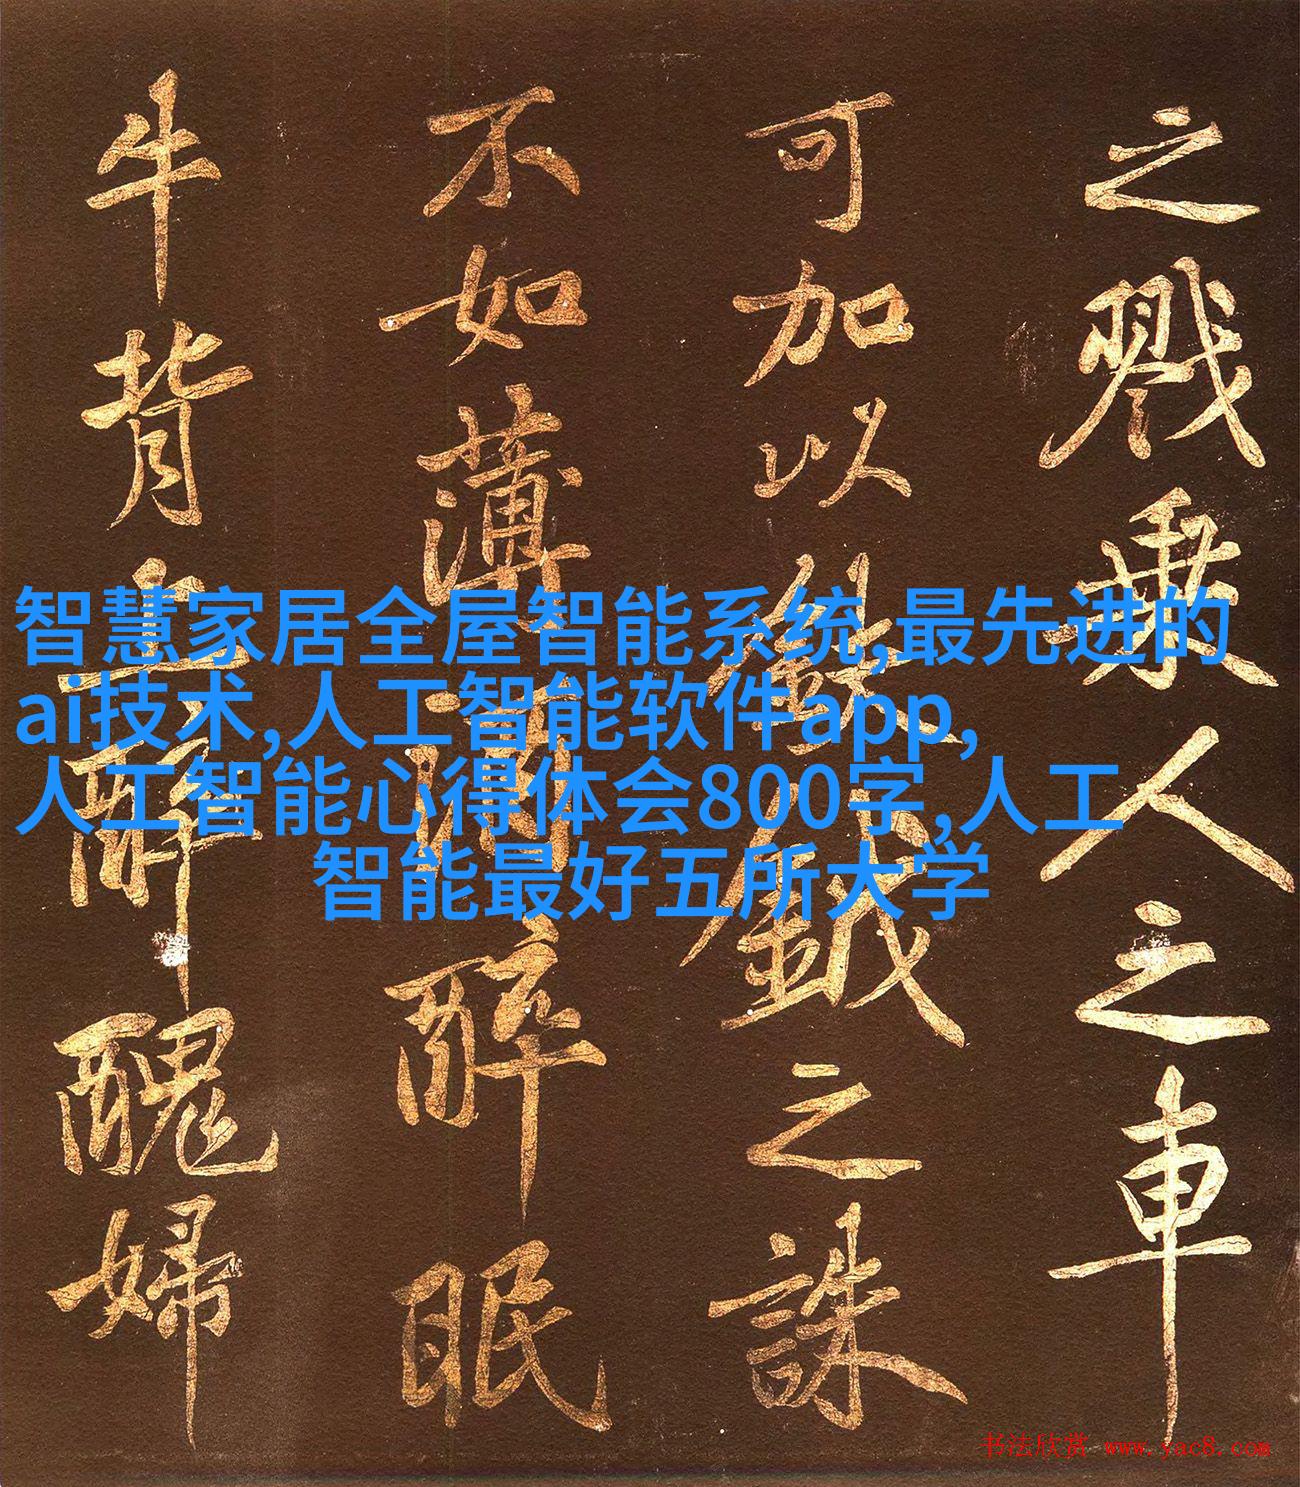 之戮乘人之車
可加以鈇鉞之誅
不如薄酒醉眠
牛背上醉醜婦
智慧家居全屋智能系统,最先进的
ai技术,人工智能软件app,
人工智能心得体会800字,人工
智能最好五所大学
书法欣赏 www.yac8.com